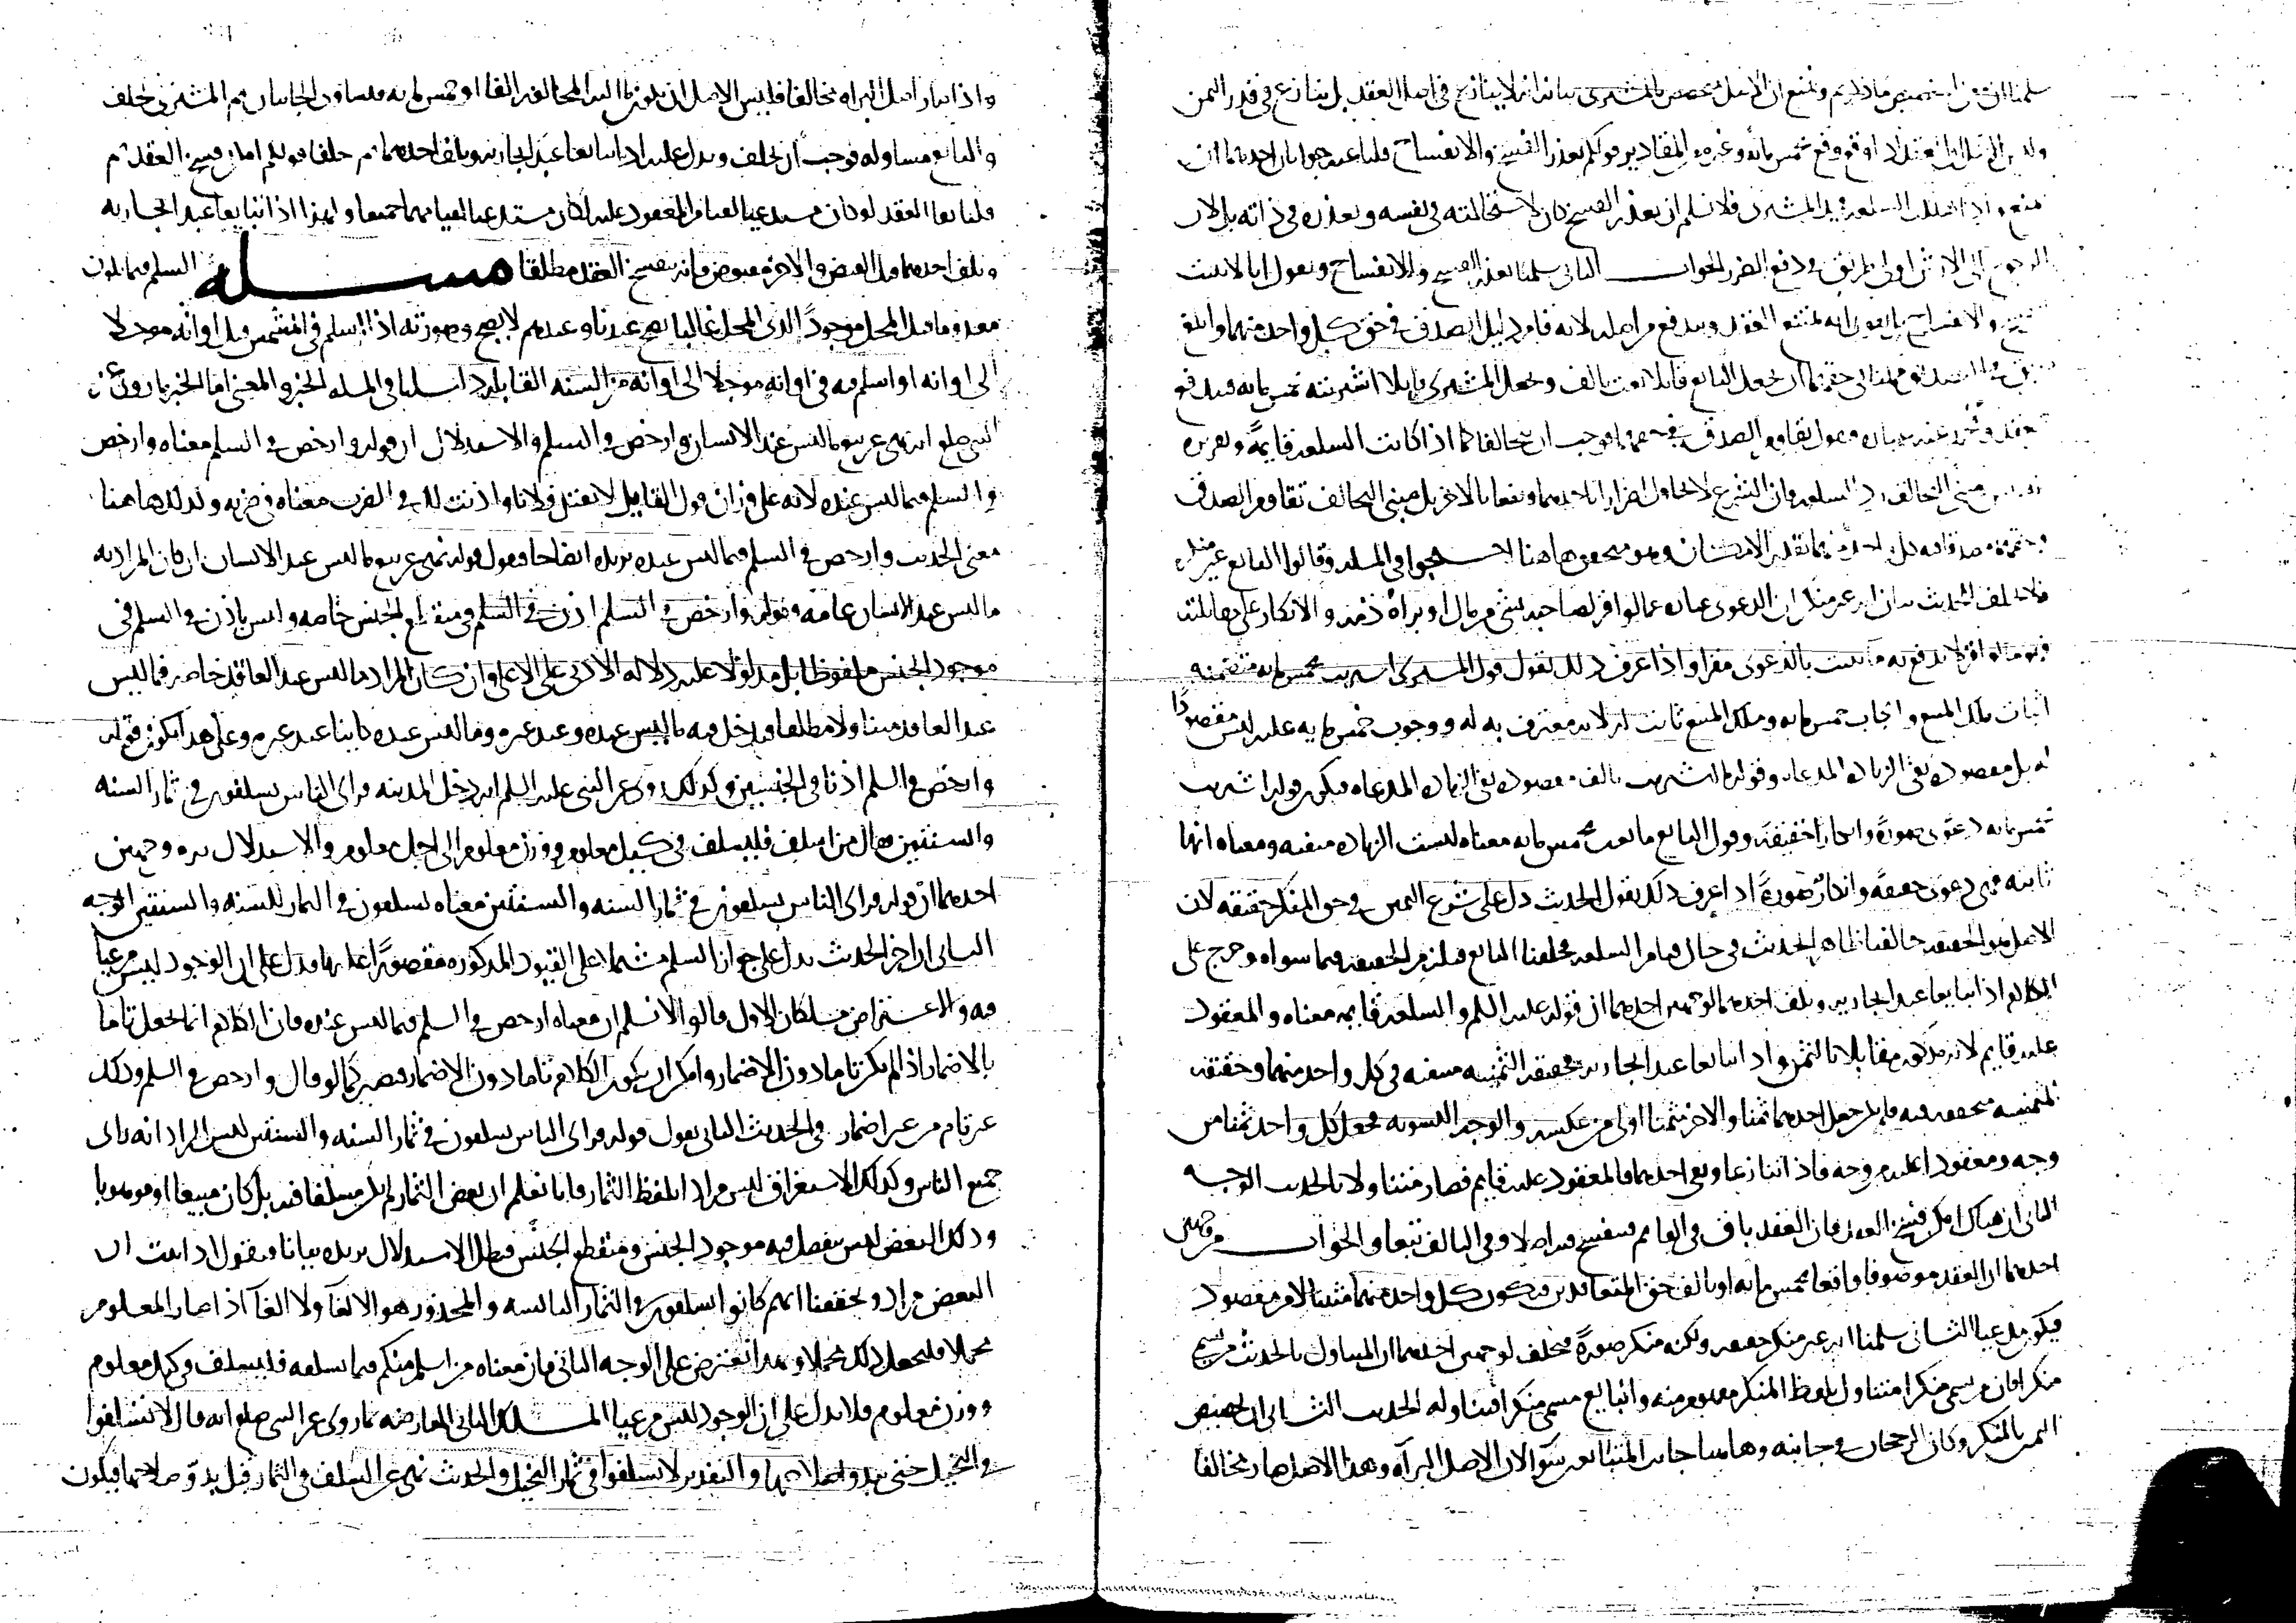 ثمنع ان الاصل بالمشتري بيانه انه لا ينازع في اصل العقد بل ينازع في قدر الثمن
وقع بخمس مايه وغيره المقادير قولكم بعذر الفسخ والانفساخ قلنا عنه جوابان احدهما ان
السلعه في يد المشتري فلا نسلم ان تعذر الفسخ كان لاستحالته في نفسه وتعذره في ذاته بل لان
في دفع الضرر الجواب الثاني سلمنا تعذر الفسخ والانفساخ ونقول انا لا نثبت
والانفساخ العقد ويندفع من اصله لانه قام دليل الصدق في حق كل واحد منهما
في حقهما ان نجعل البايع قايلا بعت بالف ونجعل المشتري قايلا اشتريته بخمس مايه
الصدق في حقهما فوجب ان يتحالفا كما اذا كانت السلعه قايمة
السلعه فان الشرع لا يحاول اضرارا باحدهما ونفعا بالاخر بل مبنى التحالف تقاوم الصدق
الامكان وهو متحقق هاهنا احتجوا في المسله وقالوا البايع غير منكر
الدعوى عباره عما لو اقر لصاحبه بشي من مال او براة ذمه والانكار على
بالدعوى مقرا واذا عرف ذلك نقول قول المشتري اشتريت بخمس مايه متضمنه
اثبات ملك المبيع وايجاب خمس مايه وملك المبيع ثابت له لانه معترف به له ووجوب خمس مايه عليه ليس مقصودا
له بل مقصوده نفي الزياده المدعاه وقوله ما اشتريت بالف مقصوده نفي الزياده المدعاه فيكون قوله اشتريت
بخمس مايه دعوى صورة وانكارا حقيقة وقول البايع ما بعت بخمس مايه معناه ليست الزياده منفيه ومعناه انها
ثابته فهي دعوى حقيقة وانكار صورة اذا عرف ذلك نقول الحديث دل على شرع اليمين في حق المنكر حقيقه لان
الاصل هو الحقيقه خالفنا ظاهر الحديث في حال قيام السلعه فحلفنا البايع فيلزم الحقيقه فيما سواه وخرج على
الكلام اذا تبايعا عبدا بجاريه وتلف احدهما لوجهين احدهما ان قوله عليه السلم والسلعه قايمه معناه والمعقود
عليه قايم لانه مذكور مقابلا بالثمن واذا تبايعا عبدا بجاريه فحقيقه الثمنيه منفيه في كل واحد منهما وحقيقه
المثمنيه متحققه فيه فليس جعل احدهما ثمنا والاخر مثمنا اولى من عكسه والوجه التسويه فجعل كل واحد ثمنا من
وجه ومعقودا عليه من وجه فاذا تنازعا وبقي احدهما فالمعقود عليه قايم فصار متناولا بالحديث الوجه
الثاني ان هناك امكن فسخ العقد فان العقد باق في القايم فينفسخ فيه اصلا وفي التالف تبعا والجواب من وجهين
احدهما ان العقد موصوفا واقعا بخمس مايه او بالف حق المتعاقدين فيكون كل واحد منهما مثبتا لامر مقصود
فيكون مدعيا الثاني سلمنا انه غير منكر حقيقه ولكنه منكر صورة فيحلف لوجهين احدهما ان المتناول بالحديث من يسمى
منكرا فان من يسمى منكرا متناول بلفظ المنكر مفهوم منه والبايع مسمى منكرا فيتناوله الحديث الثاني ان تخصيص
اليمين بالمنكر كان لرجحان في جانبه وهاهنا جانب المتبايعين سوا لان الاصل البراه وهذا الاصل صار مخالفا
واذا صار اصل البراه مخالفا فليس الاصل ان يكون ما اليه المخالفه الفا او خمس مايه فيتساوى الجانبان ثم المشتري يحلف
والبايع مساو له فوجب ان يحلف ويدل عليه اذا تبايعا عبدا بجاريه وتلف احدهما ثم حلفا قولكم امكن فسخ العقد ثم
قلنا بقا العقد لو كان مستدعيا لقيام المعقود عليه لكان مستدعيا لقيامهما جميعا ولهذا اذا تبايعا عبدا بجاريه
وتلف احدهما قبل القبض والاخر مقبوض فانه ينفسخ العقد مطلقا مسله السلم فيما يكون
معدوما قبل المحل موجودا لدى المحل غالبا يصح عندنا وعندهم لا يصح وصورته اذا اسلم في المشمش قبل اوانه موجلا
الى اوانه او اسلم فيه في اوانه موجلا الى اوانه من السنه القابله دليلنا في المسله الخبر والمعنى اما الخبر ما روي عن
النبي صلع انه نهى عن بيع ما ليس عند الانسان وارخص في السلم والاستدلال ان قوله وارخص في السلم معناه وارخص
في السلم فيما ليس عنده لانه على وزان قول القايل لا تقتل فلانا واذنت لك في الضرب معناه في ضربه وكذلك هاهنا
معنى الحديث وارخص في السلم فيما ليس عنده نزيده ايضاحا ونقول قوله نهى عن بيع ما ليس عند الانسان ان كان المراد به
ما ليس عند الانسان عامه وقوله وارخص في السلم اذن في السلم في منقطع الجنس خاصه وليس باذن في السلم في
موجود الجنس ملفوظا بل مدلولا عليه دلاله الادنى على الاعلى وان كان المراد ما ليس عند العاقد خاصه فما ليس
عند العاقد متناولا مطلقا فيدخل فيه ما ليس عنده وعند غيره وما ليس عنده كاينا عند غيره وعلى هذا يكون قوله
وارخص في السلم اذنا في الجنسين وكذلك روي عن النبي عليه السلم انه دخل المدينه فراى الناس يسلفون في ثمار السنه
والسنتين فقال من اسلف فليسلف في كيل معلوم ووزن معلوم الى اجل معلوم والاستدلال به من وجهين
احدهما ان قوله فراى الناس يسلفون في ثمار السنه والسنتين معناه يسلفون في الثمار للسنه والسنتين الوجه
الثاني ان اخر الحديث يدل على جواز السلم مشتملا على القيود المذكوره مقصورا عليها فدل على ان الوجود ليس مرعيا
فيه والاعتراض مسلكان الاول قالوا لا نسلم ان معناه ارخص في السلم فيما ليس عنده فان الكلام انما يجعل تاما
بالاضمار اذا لم يكن تاما دون الاضمار وامكن ان يكون الكلام تاما دون الاضمار فيصير كما لو قال وارخص في السلم وذلك
غير تام من غير اضمار وفي الحديث الثاني نقول قوله فراى الناس يسلفون في ثمار السنه والسنتين ليس المراد انه راى
جميع الناس وكذلك الاستغراق ليس مرادا بلفظ الثمار فانا نعلم ان بعض الثمار لم يكن مسلفا فيه بل كان مبيعا او موهوبا
وذلك البعض ليس ينفصل فيه موجود الجنس ومنقطع الجنس فبطل الاستدلال نزيده بيانا ونقول اذا ثبت ان
البعض مراد وتحققنا انهم كانوا يسلفون في الثمار اليابسه والمحذور هو الالغا ولا الغا اذا صار المعلوم
محملا فليجعل ذلك محملا وبهذا نعترض على الوجه الثاني فان معناه من اسلم منكم فيما يسلفه فليسلف في كيل معلوم
ووزن معلوم فلا يدل على ان الوجود ليس مرعيا المسلك الثاني المعارضه بما روي عن النبي صلع انه قال لا تسلفوا
في النخيل حتى يبدو صلاحها والتقدير لا تسلفوا في ثمار النخيل والحديث نهى عن السلف في الثمار قبل بدو صلاحها فيكون